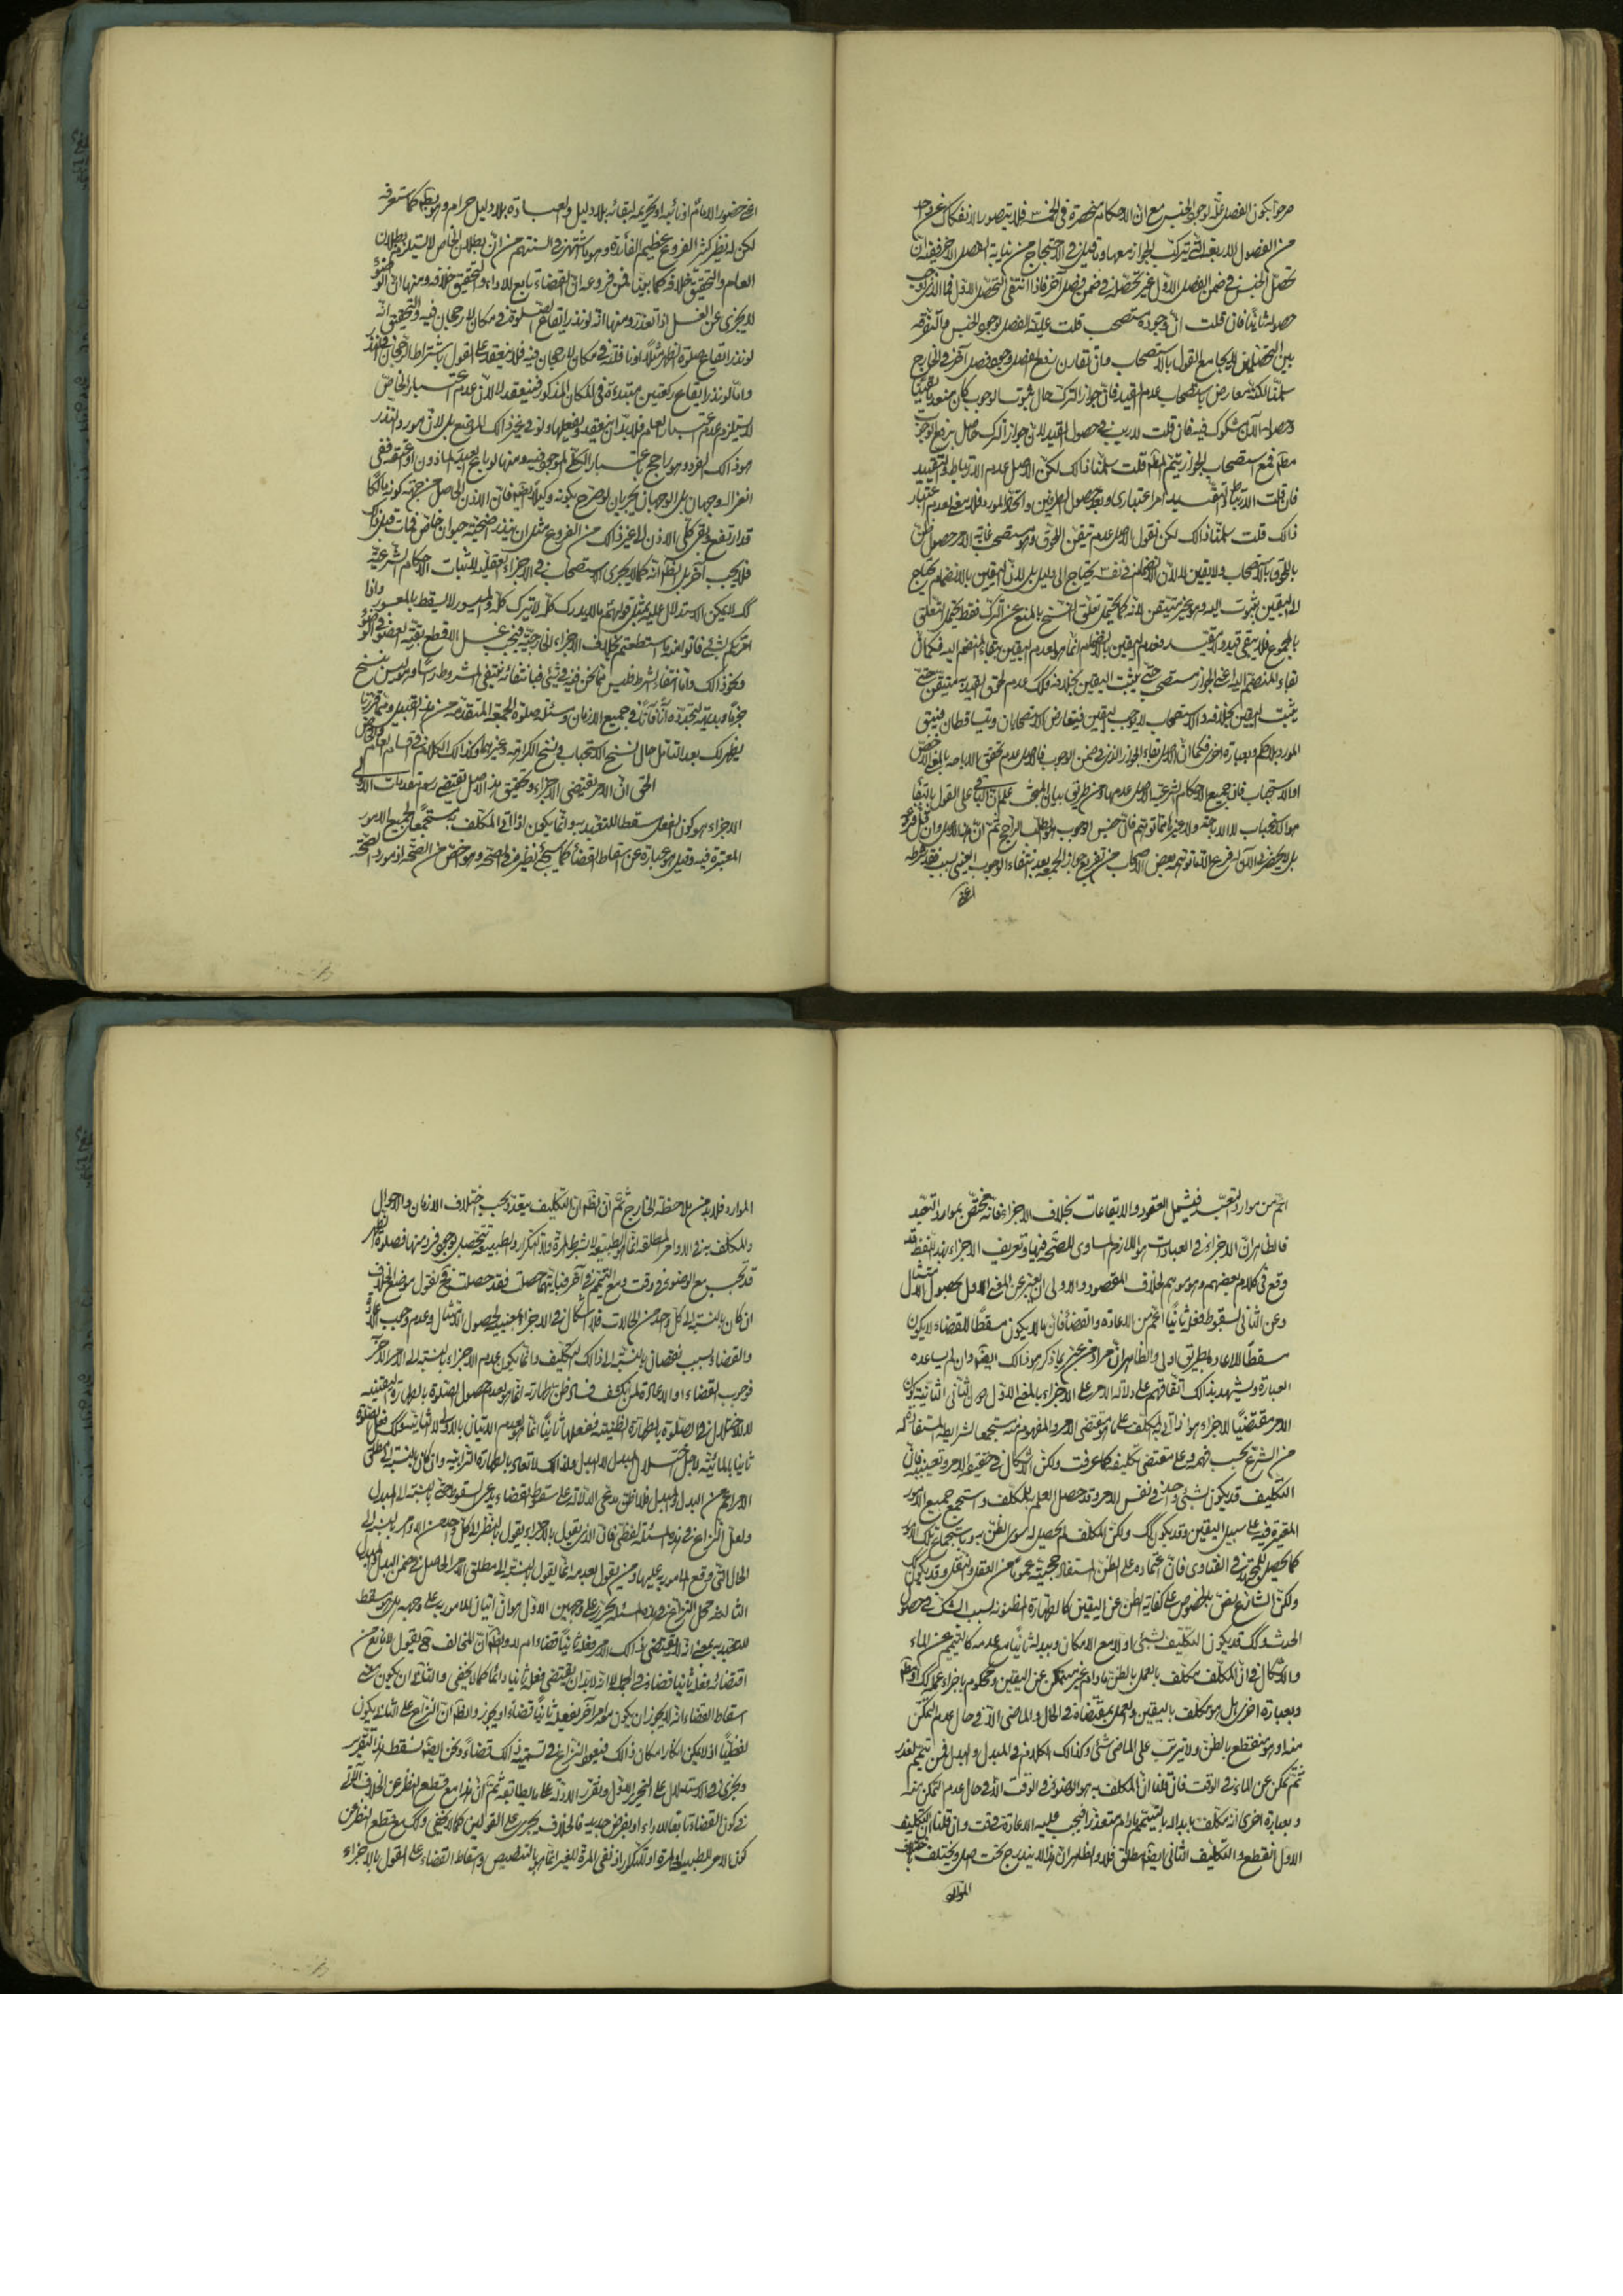 من الفصول الاربعة التي يتركب الجواز معها وما قيل في الاحتجاج من نيابة الفصل الآخر ففيه ان
حصوله ثانيا فان قلت ان وجوده مستصحب قلت علية الفصل لوجود الجنس مع التفرقة
بين التحصلين لا يجامع القول بالاستصحاب وان تقارن رفع الفصل وجود فصل آخر في الخارج
سلمنا لكنه معارض باستصحاب عدم القيد فان جواز الترك حال ثبوت الوجوب كان منعدما يقينا
وحصوله الآن مشكوك فيه فان قلت لا ريب في حصول القيد لان جواز الترك حاصل برفع الوجوب
فمع استصحاب الجواز يتم قلت سلمنا ذلك لكن الاصل عدم الارتباط والتقييد
ذالك قلت سلمنا ذالك لكن نقول الاصل عدم تيقن اللحوق وهو مستصحب غاية الامر حصول ظن
باللحوق بالاستصحاب ولا يقين لا لان الانضمام في نفسه يحتاج الى دليل بل لان اليقين بالانضمام يحتاج
الى اليقين بثبوت اليه وهو غير متيقن لانه كما يحتمل تعلق النسخ بالمنع عن الترك فقط يحتمل التعلق
بالمجموع فلا يبقى قيد ولا مقيد وعدم اليقين بالانضمام انما هو لعدم اليقين ببقاء المنضم اليه فكما ان
بقاء المنضم اليه اعني الجواز مستصحب حتى يثبت اليقين بخلافه فكذلك عدم لحوق القيد به متيقن حتى
يثبت اليقين بخلافه والاستصحاب لا يوجب اليقين فيتعارض الاستصحابان ويتساقطان فيبقى
المورد بلا حكم وبعبارة اخرى فكما ان الاصل بقاء الجواز الذي في ضمن الوجوب فالاصل عدم تحقق الاباحة بالمعنى الاخص
او الاستحباب فان جميع الاحكام الشرعية الاصل عدمها ومن طريق بيان المبحث علم ان الباقي على القول بالبقاء
هو الاستحباب لا الاباحة ولا غيرها مما توهم فان جنس الوجوب هو الطلب الراجح ثم ان هذا الاصل وان قل فروعه
بل لا يحضرني الآن له فرع الا ما توهمه بعض الاصحاب من تفريع جواز الجمعة بعد انتفاء الوجوب العيني بسبب فقد شرطه
اعني
اعني حضور الامام او نائبه او تحريمه لبقائه بلا دليل والعبادة بلا دليل حرام وهو كما ستعرفه
لكن له نظير كثير الفروع عظيم الفائدة وهو ما اشتهر في السنتهم من ان بطلان الخاص لا يستلزم بطلان
العام والتحقيق خلافه كما بينا فمن فروعه ان القضاء تابع للاداء والتحقيق خلافه ومنها ان الوضوء
لا يجزي عن الغسل اذا تعذر ومنها انه لو نذر ايقاع الصلوة في مكان لا رجحان فيه والتحقيق انه
لو نذر ايقاع صلوة الظهر مثلا او نافلة في مكان لا رجحان فيه فلا ينعقد على القول باشتراط الرجحان في النذر
واما لو نذر ايقاع ركعتين مبتدءة في المكان المذكور فينعقد لا لان عدم اعتبار الخاص
لا يستلزم عدم اعتبار العام فلا بد ان ينعقد ويفعلها ولو في غير ذالك الموضع بل لان مورد النذر
هو ذالك الفرد وهو راجح باعتبار الكلي الموجود فيه ومنها لو باع العبد الماذون او اعتقه ففي
انعزاله وجهان بل الوجهان يجريان لو صرح بكونه وكيلا ايضا فان الاذن الحاصل من جهة كونه مالكا
قد ارتفع وبقي كلي الاذن الى غير ذالك من الفروع مثل ان ينذر اضحية حيوان خاص فمات قبل ذلك
فلا يجب آخر بل انه كما لا يجري الاستصحاب في الاجزاء العقلية لاثبات الاحكام الشرعية
لا يمكن الاستدلال عليه بمثل قولهم ما لا يدرك كله لا يترك كله والميسور لا يسقط بالمعسور واذا
امرتكم بشئ فاتوا منه ما استطعتم بخلاف الاجزاء الخارجية فيجب غسل الاقطع بقية العضو في الوضوء
ونحو ذالك واما انتفاء الشرط فليس مما نحن فيه في شئ فبانتفائه ينتفي المشروط راسا وهو ليس بنسخ
يظهر لك بعد التامل حال نسخ الاستحباب ونسخ الكراهة وغيرهما وكذا لك الكلام في
الحق ان الامر يقتضي الاجزاء وتحقيق هذا الاصل يقتضي رسم مقدمات الاولى
الاجزاء هو كون الفعل مسقطا للتعبد به وانما يكون اذا اتى المكلف به مستجمعا لجميع الامور
المعتبرة فيه وقيل هو عبارة عن اسقاط القضاء كما سيجئ نظيره في الصحة وهو اخص من الصحة اذ مورد الصحة
اعم من موارد التعبد فيشمل العقود والايقاعات بخلاف الاجزاء فانه مختص بموارد التعبد
فالظاهر ان الاجزاء في العبادات هو اللازم المساوي للصحة فيها وتعريف الاجزاء بهذا اللفظ قد
وقع في كلام بعضهم وهو موهم لخلاف المقصود والاولى ان يعبر عن المعنى الاول بحصول الامتثال
وعن الثاني بسقوط فعله ثانيا اعم من الاعادة والقضاء فان ما لا يكون مسقطا للقضاء لا يكون
مسقطا للاعادة بطريق اولى والظاهر ان مراد من عبر بما ذكر هو ذالك ايضا وان لم يساعده
العبارة ويشهد بذالك اتفاقهم على دلالة الامر على الاجزاء بالمعنى الاول دون الثاني الثانية كون
الامر مقتضيا للاجزاء هو اذا اتى به المكلف على ما هو مقتضى الامر والمفهوم منه مستجمعا لشرايطه المستفادة له
من الشرع بحسب فهمه وعلى مقتضى تكليفه كما عرفت ولكن الاشكال في حقيقة الامر وتعيينه فان
التكليف قد يكون بشئ واحد في نفس الامر وقد حصل العلم به للمكلف واستجمع جميع الامور
المعتبرة فيه على سبيل اليقين وقد يكون كك ولكن المكلف لم يحصل له سوى الظن به وباستجماع تلك الامور
كما يحصل للمجتهد في الفتاوى فان اعتماده على الظن المستفاد حجيته عموما من العقل والنقل وقد يكون كك
ولكن الشارع نص بالخصوص على كفاية الظن عن اليقين كالطهارة المظنونة بسبب الشك في حصول
الحدث وكك قد يكون التكليف بشئ اولا مع الامكان وببدله ثانيا مع عدمه كالتيمم عن الماء
والاشكال في ان المكلف مكلف بالعمل بالظن ما دام غير متمكن عن اليقين ومحكوم باجزاء عمله كك او مطلقا
وبعبارة اخرى هل هو مكلف باليقين والعمل بمقتضاه في الحال والماضي الا في حال عدم التمكن
منه او هو منقطع بالظن ولا يترتب على الماضي شئ وكذالك الكلام في المبدل والبدل فمن تيمم لعذر
ثم تمكن عن الماء في الوقت فان قلنا ان المكلف به هو الوضوء في الوقت الا في حال عدم التمكن منه
وبعبارة اخرى انه مكلف بابداله بالتيمم ما دام متعذرا فيجب عليه الاعادة في الوقت وان قلنا ان التكليف
الاول انقطع والتكليف الثاني ايضا مطلق فلا والظاهر ان هذا لا يندرج تحت اصل ويختلف باختلاف
الموارد
الموارد فلا بد من ملاحظة الخارج ثم ان الظاهر ان التكليف يتعدد بحسب اختلاف الازمان والاحوال
قد تجب مع الوضوء في وقت ومع التيمم في آخر فبايتهما حصلت فقد حصلت فح نقول موضع الخلاف
ان كان بالنسبة الى كل واحد من الحالات فلا اشكال في الاجزاء بمعنييه لحصول الامتثال وعدم وجوب الاعادة
والقضاء بسبب نقصان بالنسبة الى ذالك التكليف وانما يكون عدم الاجزاء بالنسبة الى الامر الآخر
فوجوب القضاء او الاعادة لمن انكشف فساد ظن طهارته انما هو لعدم حصول الصلوة بالطهارة اليقينية
لا لاختلال في الصلوة بالطهارة الظنية ففعلها ثانيا انما هو لعدم الاتيان بالاولى لا ثانية وكك فعل الصلوة
ثانيا بالمائية لاجل اختلال المبدل لا البدل ولذالك لا تعاد بالطهارة الترابية وان كان بالنسبة الى مطلق
الامر اعم من البدل والمبدل فلا اظن مدعي الدلالة على سقوط القضاء يدعي السقوط حتى بالنسبة الى المبدل
ولعل النزاع في هذه المسئلة لفظي فان الذي يقول بالاجزاء يقول بالنظر الى كل واحد من الاوامر بالنسبة الى
الحال التي وقع المامور به عليها ومن يقول بعدمه انما يقول بالنسبة الى مطلق الامر الحاصل في ضمن البدل والمبدل
الثالثة محل النزاع في هذه المسئلة يحرر على وجهين الاول هو ان اتيان المامور به على وجهه هل هو مسقط
للتعبد به بمعنى انه لا يقتضي ذالك الامر فعله ثانيا قضاء ام لا والظاهر ان المخالف ح يقول لا مانع من
اقتضائه فعله ثانيا قضاء في الجملة لا انه لا بد ان يقتضي فعله ثانيا دائما كما لا يخفى والثاني ان يكون معنى
اسقاط القضاء انه لا يجوز ان يكون معه امر آخر بفعله ثانيا قضاء او يجوز والظاهر ان النزاع على الثاني يكون
لفظيا اذ لا يمكن انكار امكان ذالك فيعود النزاع في تسميته ذالك قضاء ونحن ايضا نسقط هذا التقرير
ونجري في الاستدلال على التحرير الاول ونقرر الادلة على ما يطابقه ثم ان هذا مع قطع النظر عن الخلاف الآتي
في كون القضاء تابعا للاداء او بفرض جديد فالخلاف يجري على القولين كما لا يخفى وكك مع قطع النظر عن
كون الامر للطبيعة او المرة او التكرار اذ نفي المرة للغير انما هو بالتنصيص واسقاط القضاء على القول بالاجزاء